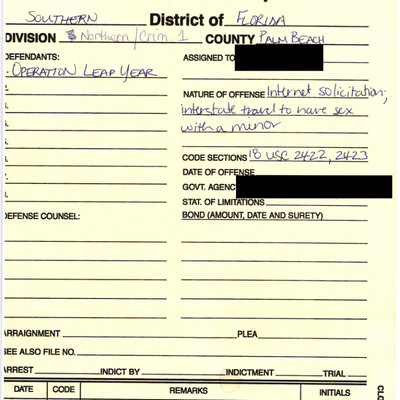 SOUTHERN District of FLORIDA
DIVISION Northern/Crim. 1 COUNTY PALM BEACH
DEFENDANTS: ASSIGNED TO
OPERATION LEAP YEAR
NATURE OF OFFENSE Internet solicitation;
interstate travel to have sex
with a minor
CODE SECTIONS 18 USC 2422, 2423
DATE OF OFFENSE
GOVT. AGENC
STAT. OF LIMITATIONS
DEFENSE COUNSEL: BOND (AMOUNT, DATE AND SURETY)
ARRAIGNMENT PLEA
SEE ALSO FILE NO.
ARREST INDICT BY INDICTMENT TRIAL
DATE CODE REMARKS INITIALS